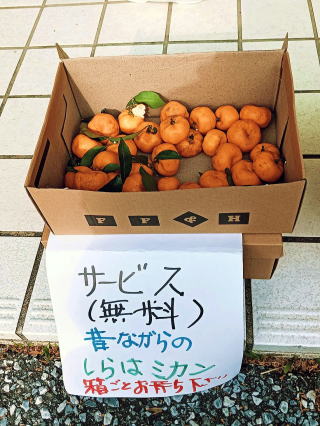 FF◆H
サービス
(無料)
昔ながらの
しらはミカン
箱ごとお持ち下さい